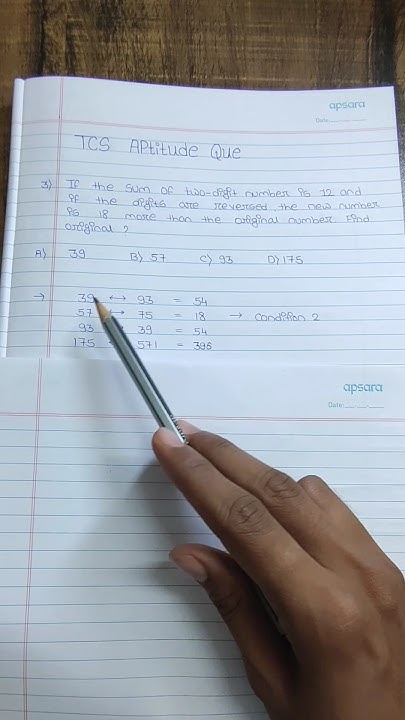 apsara
Date:
TCS APtitude Que
3) If the sum of two-digit number is 12 and
if the digits are reversed the new number
is 18 more than the original number. Find
original ?
A) 39 B) 57 C) 93 D) 175
→ 39 ↔ 93 = 54
57 ↔ 75 = 18 → Condition 2
93 39 = 54
175 571 = 396
apsara
Date: